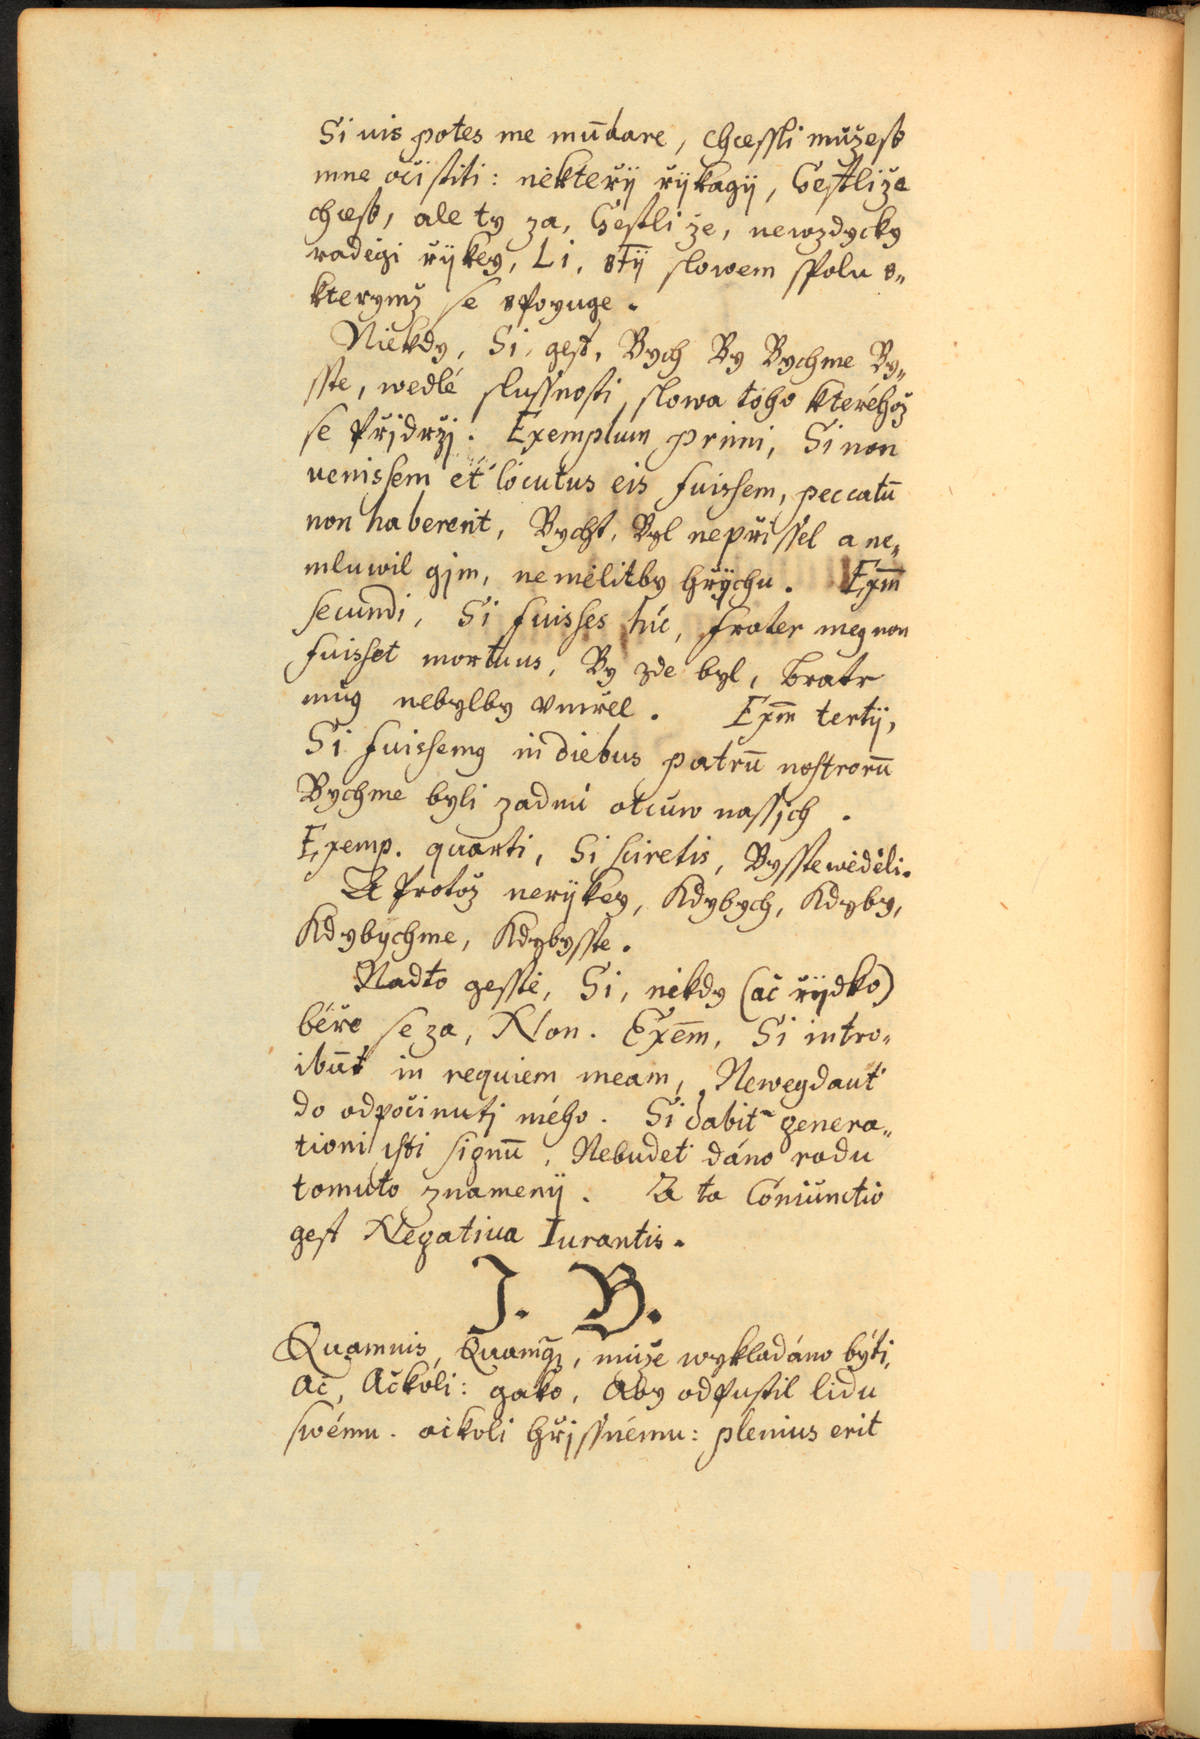 Si uis potes me mūdare, chcessli můžeß
mne očistiti: někteřij řijkagij, Gestliže
chceß, ale ty za, Gestliže, newzdycky
raděgi řijkey, Li, s tij slowem spolu s„
kterymž se spoyuge.
Někdy, Si, gest, Bych By Bychme By„
sste, wedlé slussnosti slowa toho kteréhož
se přidržj. Exemplum primi, Si non
uenissem et locutus eis fuissem, peccatū
non haberent, Bycht, Byl nepřissel a ne„
mluwil gjm, neměliťby hřijchu. Exm̄
secundi, Si fuisses hic, frater meq non
fuisset mortuus, By zde byl, bratr
můg nebylby vmřel. Exm̄ tertij,
Si fuissemq in diebus patrū nostrorū
Bychme byli zadnů otcůw nassjch.
Exemp. quarti, Si sciretis, Byssteweděli.
A protož neřijkey, Kdybych, Kdyby,
Kdybychme, Kdybysste.
Nadto gesstě, Si, někdy (ač řijdko)
béře se za, Non. Exēm, Si intro„
ibūt in requiem meam, Newegdauť
do odpočinutj mého. Si dabit~ genera„
tioni isti signū, Nebudeť dáno rodu
tomuto znamenij. A ta Coniunctio
gest Negatiua Iurantis.
J. B.
Quamuis, Quamq̃, může wykladáno býti,
Ač, Ačkoli: gako, Aby odpustil lidu
swému. ačkoli hřjssnému: plenius erit
MZK MZK